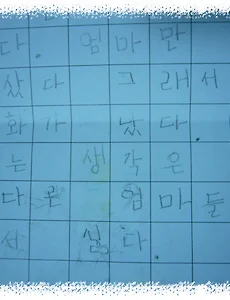 다. 엄마만
샀다 그래서
화가 났다.
는 생각은
다른 엄마들